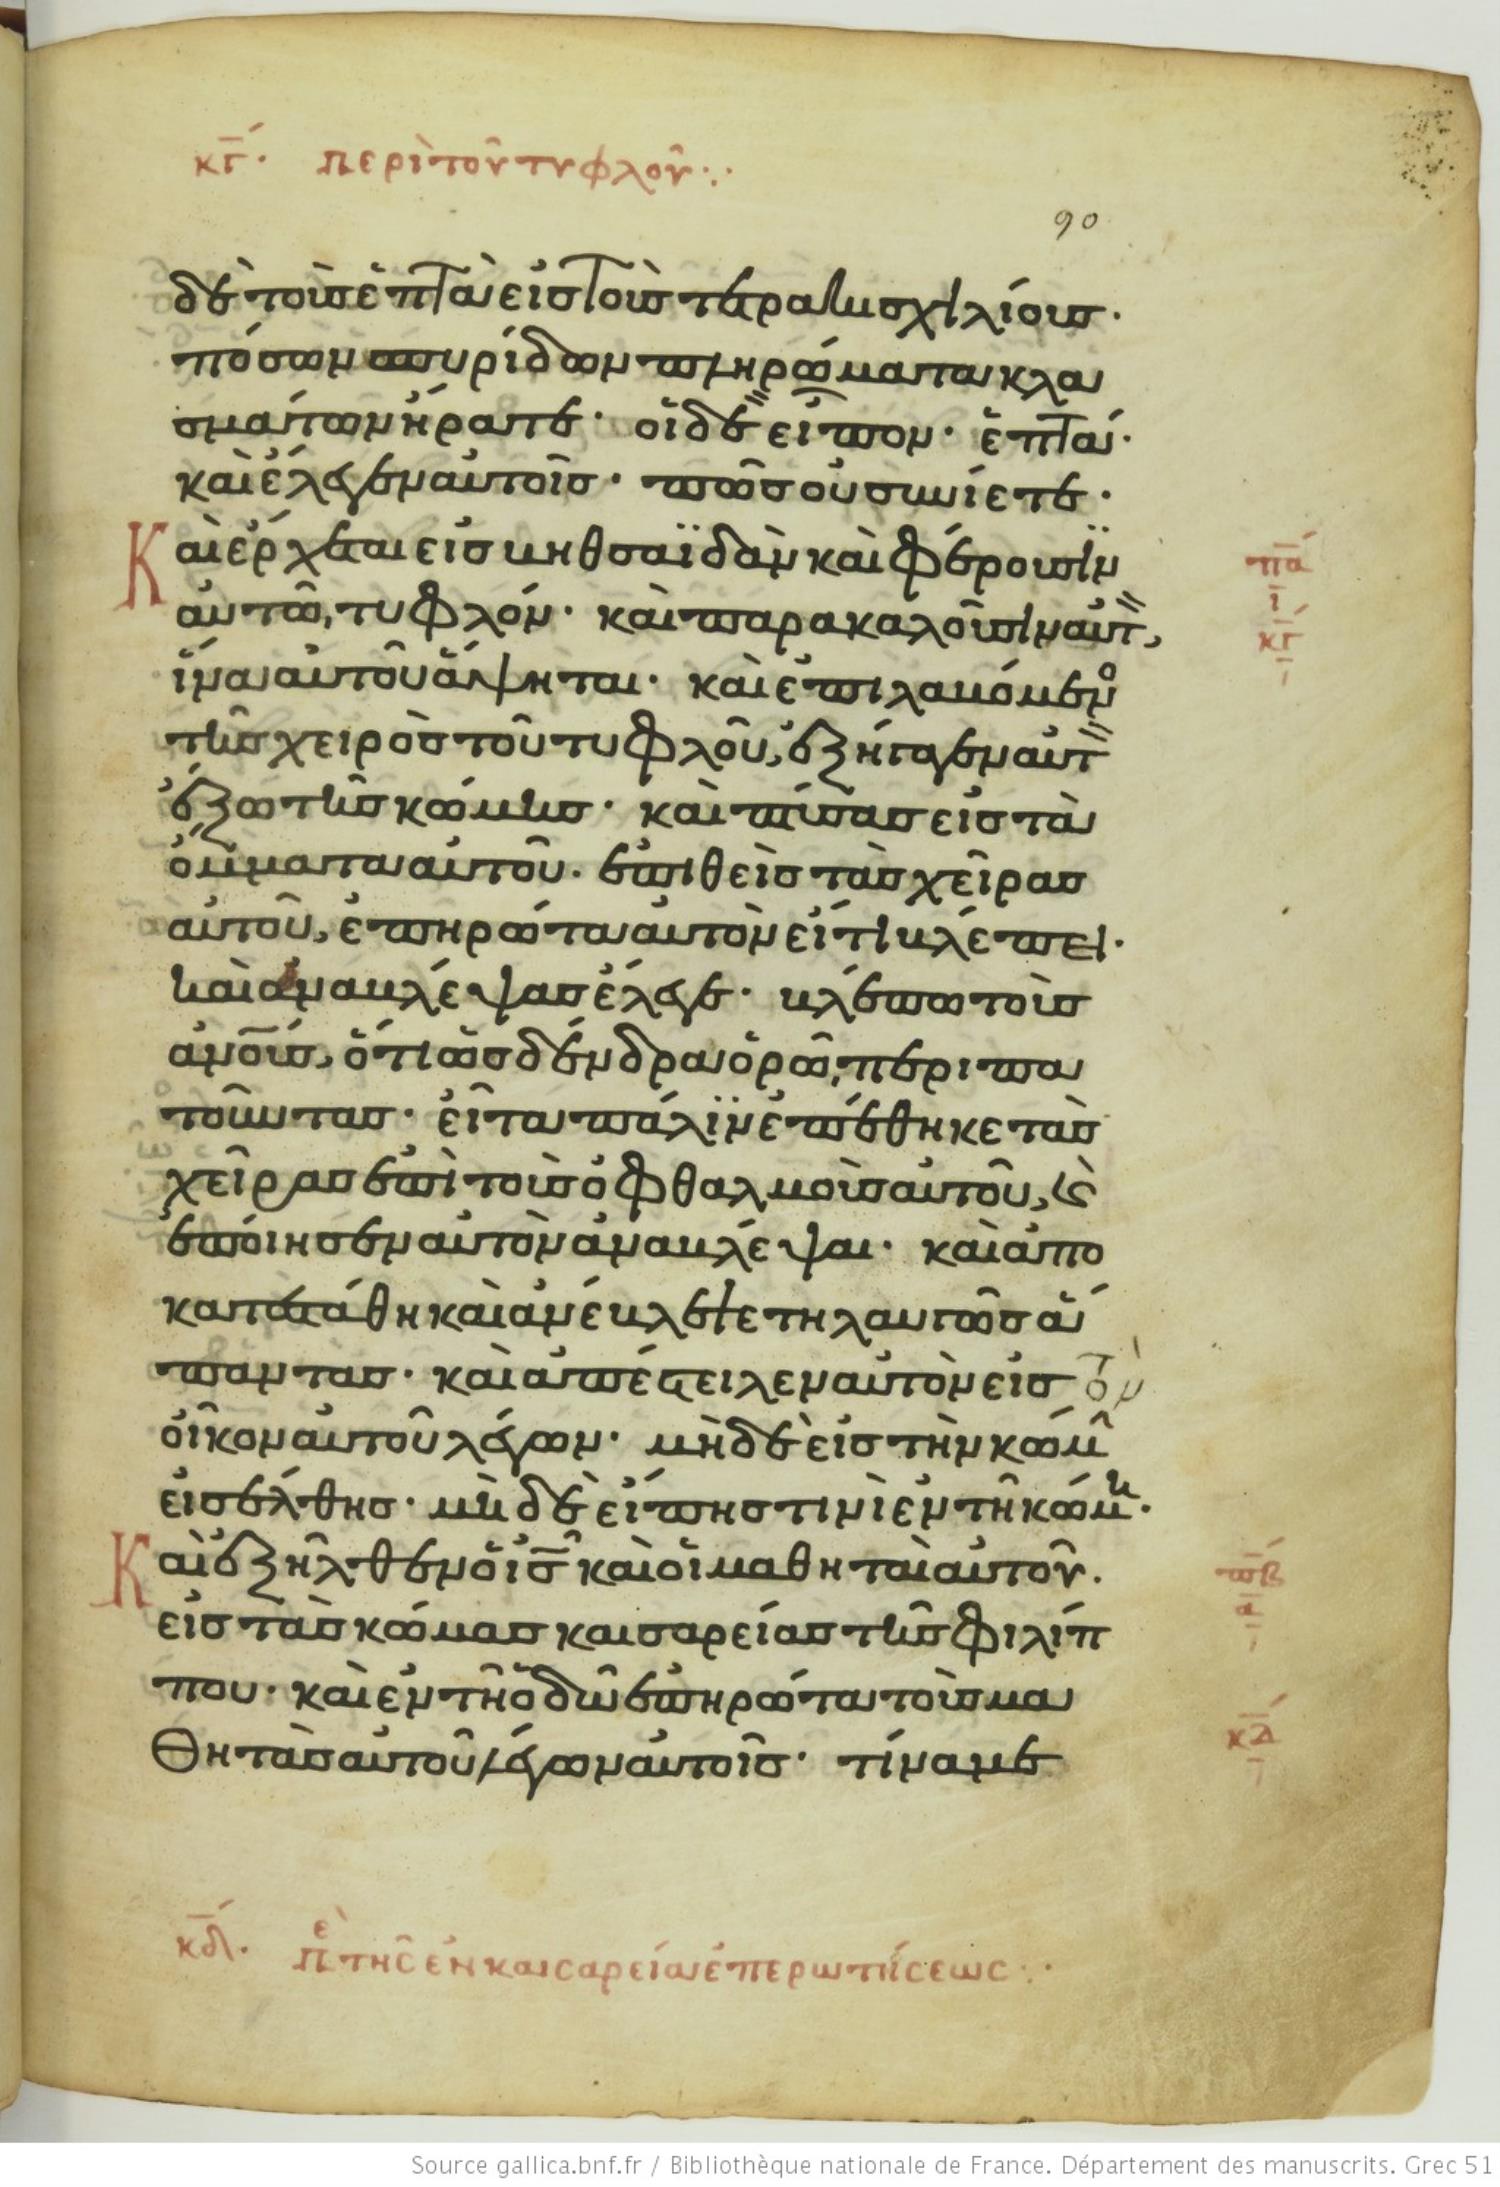 κγ. περὶ τοῦ τυφλοῦ:.
90
δὲ τοὺς ἑπτὰ εἰς τοὺς τετρακισχιλίους.
πόσων σπυρίδων πληρώματα κλα
σμάτων ἤρατε. οἱ δὲ εἶπον. ἑπτά.
καὶ ἔλεγεν αὐτοῖς. πῶς οὐ συνίετε.
Καὶ ἔρχεται εἰς βηθσαϊδὰν καὶ φέρουσιν
αὐτῶ, τυφλόν. καὶ παρακαλοῦσιν αὐτ,
ἵνα αὐτοῦ ἅψηται. καὶ ἐπιλαβόμενο
τῆς χειρὸς τοῦ τυφλοῦ, ἐξήγαγεν αὐτ
ἔξω τῆς κώμης. καὶ πτύσας εἰς τὰ
ὄμματα αὐτοῦ. ἐπιθεὶς τὰς χεῖρας
αὐτοῦ, ἐπηρώτα αὐτὸν εἴ τι βλέπει.
καὶ ἀναβλέψας ἔλεγε. βλέπω τοὺς
ἀνους, ὅτι ὡς δένδρα ὁρῶ, περιπα
τοῦντας. εἶτα πάλιν ἐπέθηκε τὰς
χεῖρας ἐπὶ τοὺς ὀφθαλμοὺς αὐτοῦ, ϗ
ἐποίησεν αὐτὸν ἀναβλέψαι. καὶ ἀπο
κατεστάθη καὶ ἀνέβλεψε τηλαυγῶς ἅ
παντας. καὶ ἀπέστειλεν αὐτὸν εἰς τὸν
οἶκον αὐτοῦ λέγων. μὴδὲ εἰς τὴν κώμ
εἰσέλθης. μὴδὲ εἴπης τινὶ ἐν τῆ κώμη.
Καὶ ἐξῆλθεν ὁ ις καὶ οἱ μαθηταὶ αὐτοῦ.
εἰς τὰς κώμας καισαρείας τῆς φιλίπ
που. καὶ ἐν τῆ ὁδῶ ἐπηρώτα τοὺς μα
θητὰς αὐτοῦ λέγων αὐτοῖς. τίνα με
πα
ι
κγ
πβ
α
κδ
κδ. πε τῆς ἐν καισαρεία ἐπερωτήσεως:.